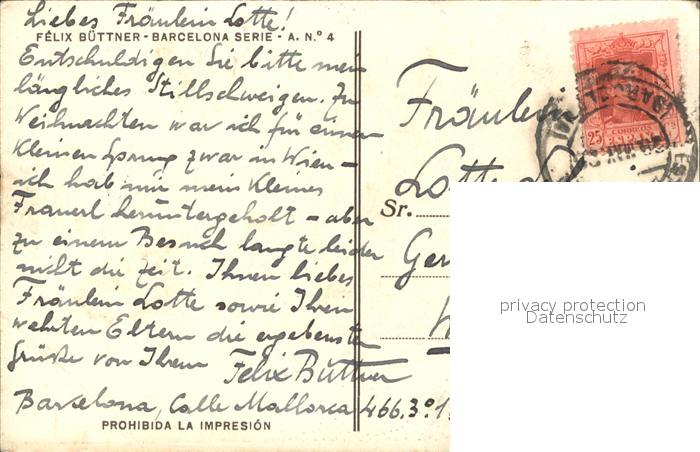 Liebes Fräulein Lotte!
FÉLIX BÜTTNER - BARCELONA SERIE - A. N.º 4
Entschuldigen Sie bitte mein
längliches Stillschweigen. Zu
Weihnachten war ich für einen
kleinen Sprung zwar in Wien –
ich hab mir mein kleines
Frauerl heruntergeholt – aber
zu einem Besuch langte leider
nicht die Zeit. Ihnen liebes
Fräulein Lotte sowie Ihren
werten Eltern die ergebensten
Grüße von Ihrem
Felix Büttner
Barcelona, Calle Mallorca 466. 3º 1
PROHIBIDA LA IMPRESIÓN
Fräulein
Lotte
Sr.
25
CORREOS
privacy protection
Datenschutz